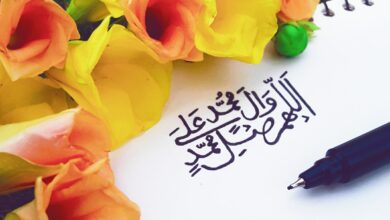 اَللّهُمَّ صَلِّ عَلی مُحَمَّدٍ وَآلِ مُحَمَّدٍ